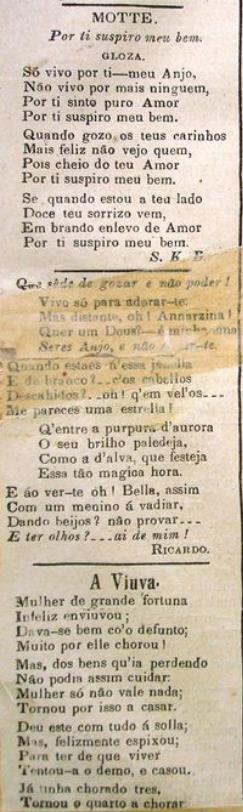 MOTTE.
Por ti suspiro meu bem.
GLOZA.
Só vivo por ti—meu Anjo,
Não vivo por mais ninguem,
Por ti sinto puro Amor
Por ti suspiro meu bem.
Quando gozo os teus carinhos
Mais feliz não vejo quem,
Pois cheio do teu Amor
Por ti suspiro meu bem.
Se quando estou a teu lado
Doce teu sorrizo vem,
Em brando enlevo de Amor
Por ti suspiro meu bem.
S. K. E.
Que sêde de gozar e não poder!
Vivo só para adorar-te:
Mas distante, oh! Annarzina!
Quer um Deus?—é minha
Seres Anjo, e não
Quando estaes n'essa janella
E de branco?..c'os cabellos
Descahidos?..oh! q'em vel'os...
Me pareces uma estrella!
Q'entre a purpura d'aurora
O seu brilho paledeja,
Como a d'alva, que festeja
Essa tão magica hora.
E áo ver-te oh! Bella, assim
Com um menino á vadiar,
Dando beijos? não provar...
E ter olhos?...ai de mim!
RICARDO.
A Viuva.
Mulher de grande fortuna
Infeliz enviuvou;
Dava-se bem co'o defunto;
Muito por elle chorou!
Mas, dos bens qu'ia perdendo
Não podia assim cuidar:
Mulher só não vale nada;
Tornou por isso a casar.
Deu este com tudo á solla;
Mas, felizmente espixou;
Para ter de que viver
Tentou-a o demo, e casou.
Já tinha chorado tres,
Tornou o quarto a chorar